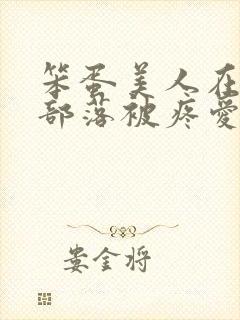 笨蛋美人在
部落被疼爱
娄金将